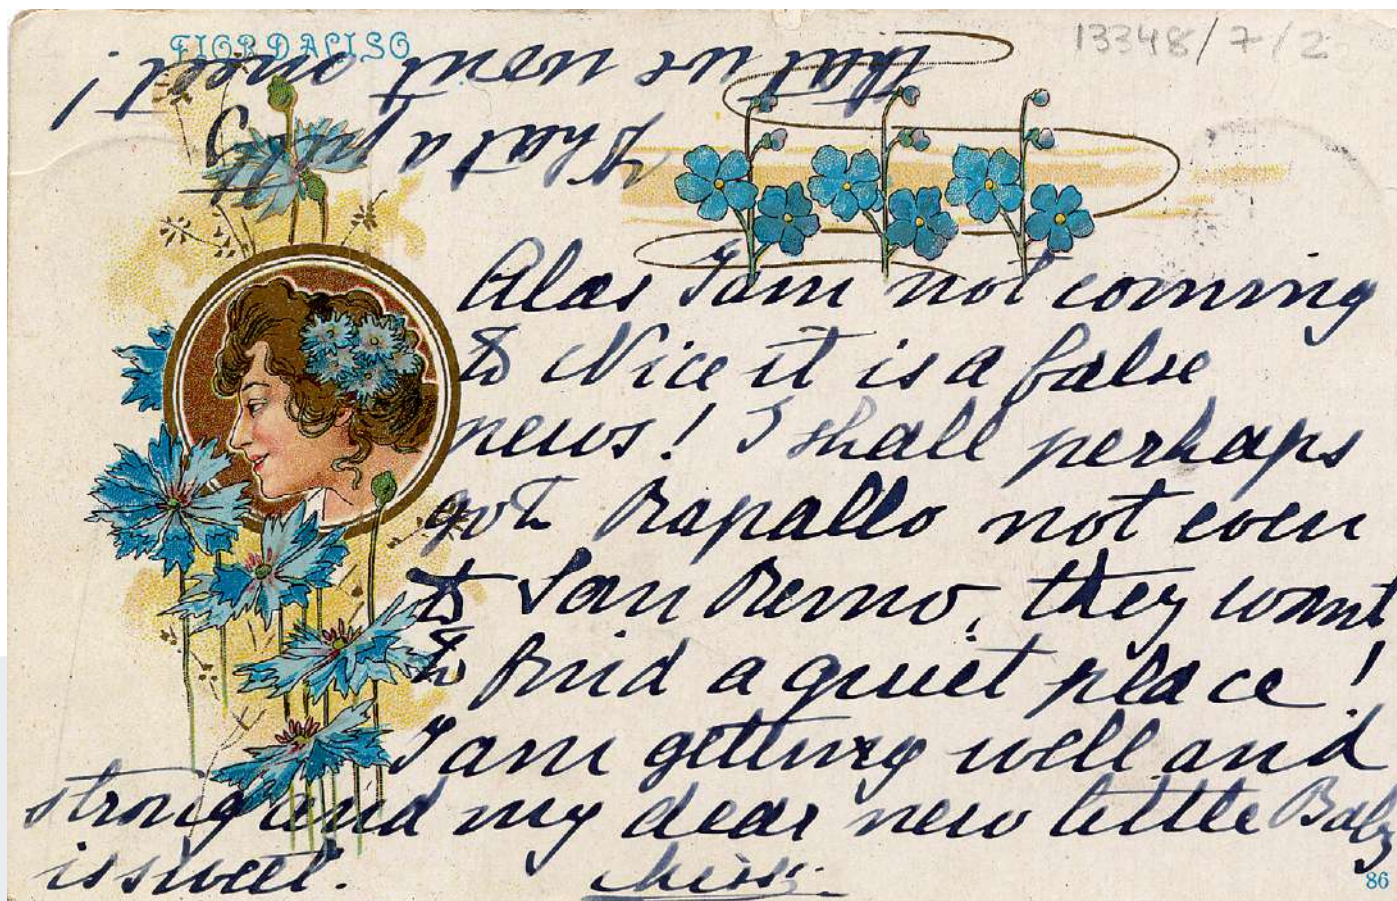 FIORDALISO
13348/7/2
Alas I am not coming
to Nice it is a false
news! I shall perhaps
go to Rapallo not even
to San Remo, they want
to find a quiet place!
I am getting well and
strong and my dear new little Baby
is sweet.
What a pity
that we went meet!
86